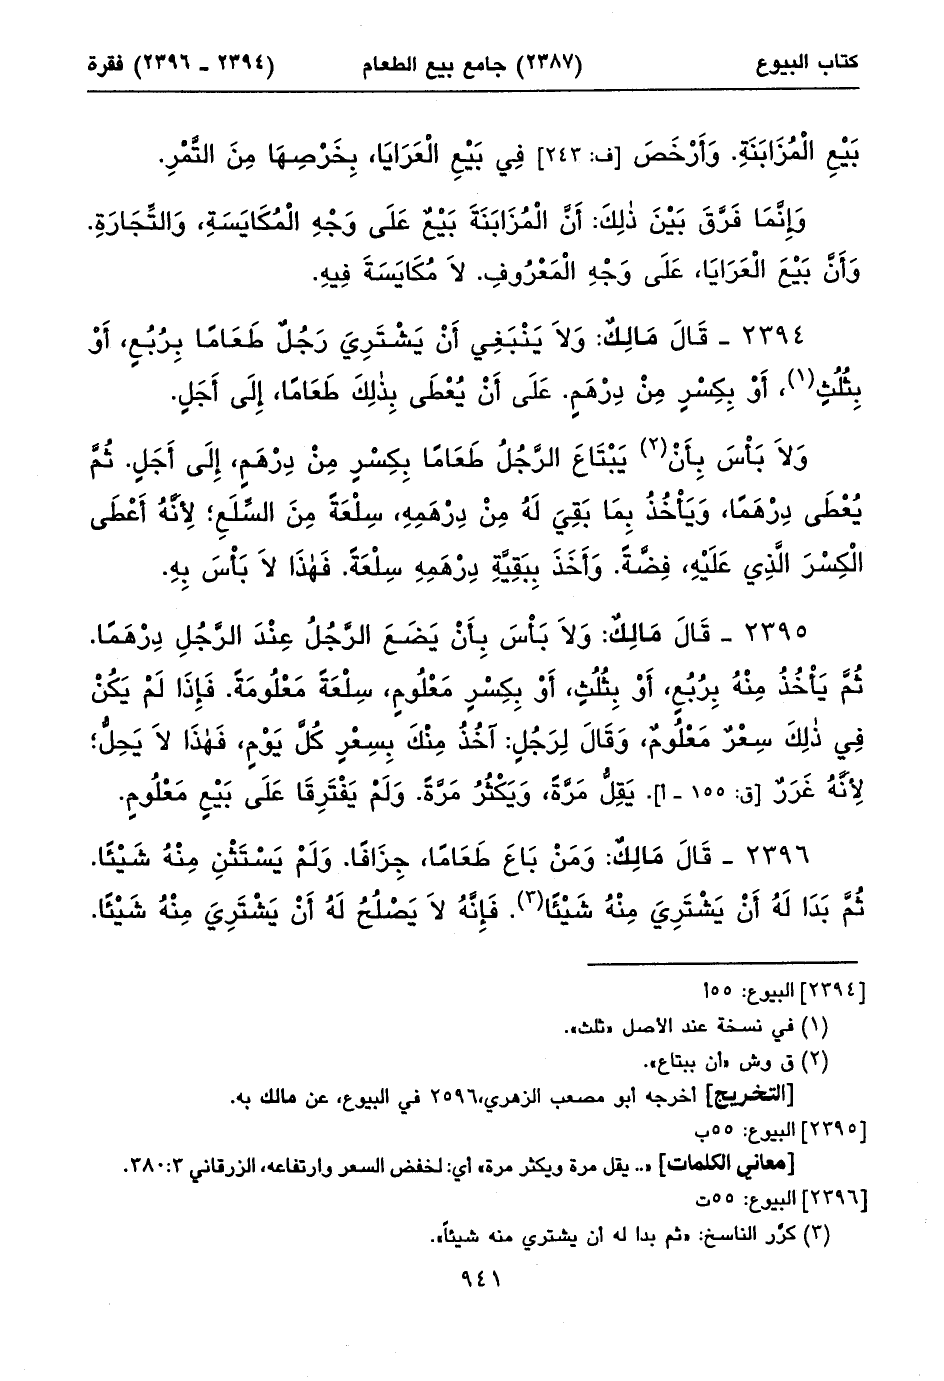 كتاب البيوع (٢٣٨٧) جامع بيع الطعام (٢٣٩٤ ـ ٢٣٩٦) فقرة
بَيْعِ الْمُزَابَنَةِ. وَأَرْخَصَ [ف: ٢٤٣] فِي بَيْعِ الْعَرَايَا، بِخَرْصِهَا مِنَ التَّمْرِ.
وَإِنَّمَا فَرَّقَ بَيْنَ ذٰلِكَ: أَنَّ الْمُزَابَنَةَ بَيْعٌ عَلَى وَجْهِ الْمُكَايَسَةِ، وَالتِّجَارَةِ.
وَأَنَّ بَيْعَ الْعَرَايَا، عَلَى وَجْهِ الْمَعْرُوفِ. لاَ مُكَايَسَةَ فِيهِ.
٢٣٩٤ ـ قَالَ مَالِكٌ: وَلاَ يَنْبَغِي أَنْ يَشْتَرِيَ رَجُلٌ طَعَامًا بِرُبُعٍ، أَوْ
بِثُلُثٍ(١)، أَوْ بِكِسْرٍ مِنْ دِرْهَمٍ. عَلَى أَنْ يُعْطَى بِذٰلِكَ طَعَامًا، إِلَى أَجَلٍ.
وَلاَ بَأْسَ بِأَنْ(٢) يَبْتَاعَ الرَّجُلُ طَعَامًا بِكِسْرٍ مِنْ دِرْهَمٍ، إِلَى أَجَلٍ. ثُمَّ
يُعْطَى دِرْهَمًا، وَيَأْخُذُ بِمَا بَقِيَ لَهُ مِنْ دِرْهَمِهِ، سِلْعَةً مِنَ السِّلَعِ؛ لِأَنَّهُ أَعْطَى
الْكِسْرَ الَّذِي عَلَيْهِ، فِضَّةً. وَأَخَذَ بِبَقِيَّةِ دِرْهَمِهِ سِلْعَةً. فَهٰذَا لاَ بَأْسَ بِهِ.
٢٣٩٥ ـ قَالَ مَالِكٌ: وَلاَ بَأْسَ بِأَنْ يَضَعَ الرَّجُلُ عِنْدَ الرَّجُلِ دِرْهَمًا.
ثُمَّ يَأْخُذُ مِنْهُ بِرُبُعٍ، أَوْ بِثُلُثٍ، أَوْ بِكِسْرٍ مَعْلُومٍ، سِلْعَةً مَعْلُومَةً. فَإِذَا لَمْ يَكُنْ
فِي ذٰلِكَ سِعْرٌ مَعْلُومٌ، وَقَالَ لِرَجُلٍ: آخُذُ مِنْكَ بِسِعْرِ كُلِّ يَوْمٍ، فَهٰذَا لاَ يَحِلُّ؛
لِأَنَّهُ غَرَرٌ [ق: ١٥٥ ـ أ]. يَقِلُّ مَرَّةً، وَيَكْثُرُ مَرَّةً. وَلَمْ يَفْتَرِقَا عَلَى بَيْعٍ مَعْلُومٍ.
٢٣٩٦ ـ قَالَ مَالِكٌ: وَمَنْ بَاعَ طَعَامًا، جِزَافًا. وَلَمْ يَسْتَثْنِ مِنْهُ شَيْئًا.
ثُمَّ بَدَا لَهُ أَنْ يَشْتَرِيَ مِنْهُ شَيْئًا(٣). فَإِنَّهُ لاَ يَصْلُحُ لَهُ أَنْ يَشْتَرِيَ مِنْهُ شَيْئًا.
[٢٣٩٤] البيوع: ٥٥أ
(١) في نسخة عند الأصل «ثلث».
(٢) ق وش «أن يبتاع».
[التخريج] أخرجه أبو مصعب الزهري، ٢٥٩٦ في البيوع، عن مالك به.
[٢٣٩٥] البيوع: ٥٥ب
[معاني الكلمات] «.. يقل مرة ويكثر مرة» أي: لخفض السعر وارتفاعه، الزرقاني ٣:٣٨٠.
[٢٣٩٦] البيوع: ٥٥ت
(٣) كرَّر الناسخ: «ثم بدا له أن يشتري منه شيئاً».
٩٤١